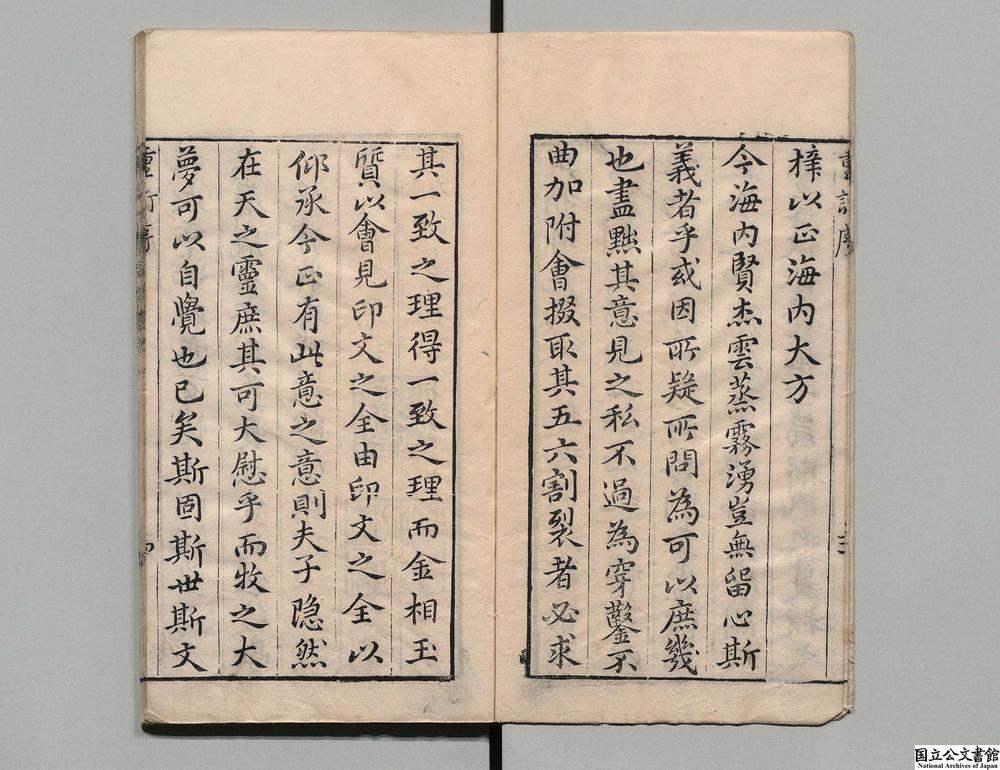 梓以正海内大方
今海内賢杰雲蒸霧湧豈無留心斯
義者乎或因所疑所問為可以庶幾
也盡黜其意見之私不過為穿鑿不
曲加附會掇取其五六割裂者必求
其一致之理得一致之理而金相玉
質以會見印文之全由印文之全以
仰承今正有此意之意則夫子隠然
在天之靈庶其可大慰乎而牧之大
夢可以自覺也已矣斯固斯世斯文
国立公文書館
National Archives of Japan